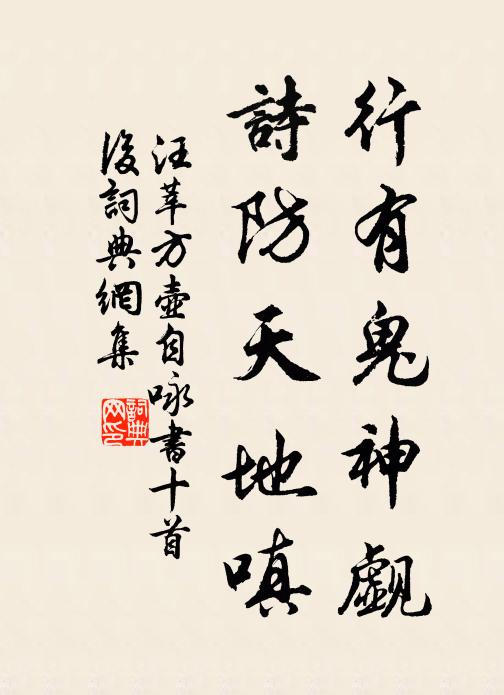 行有鬼神覷
詩防天地嗔
汪莘方壺自咏書十首
後詞典網集
詞典
网印